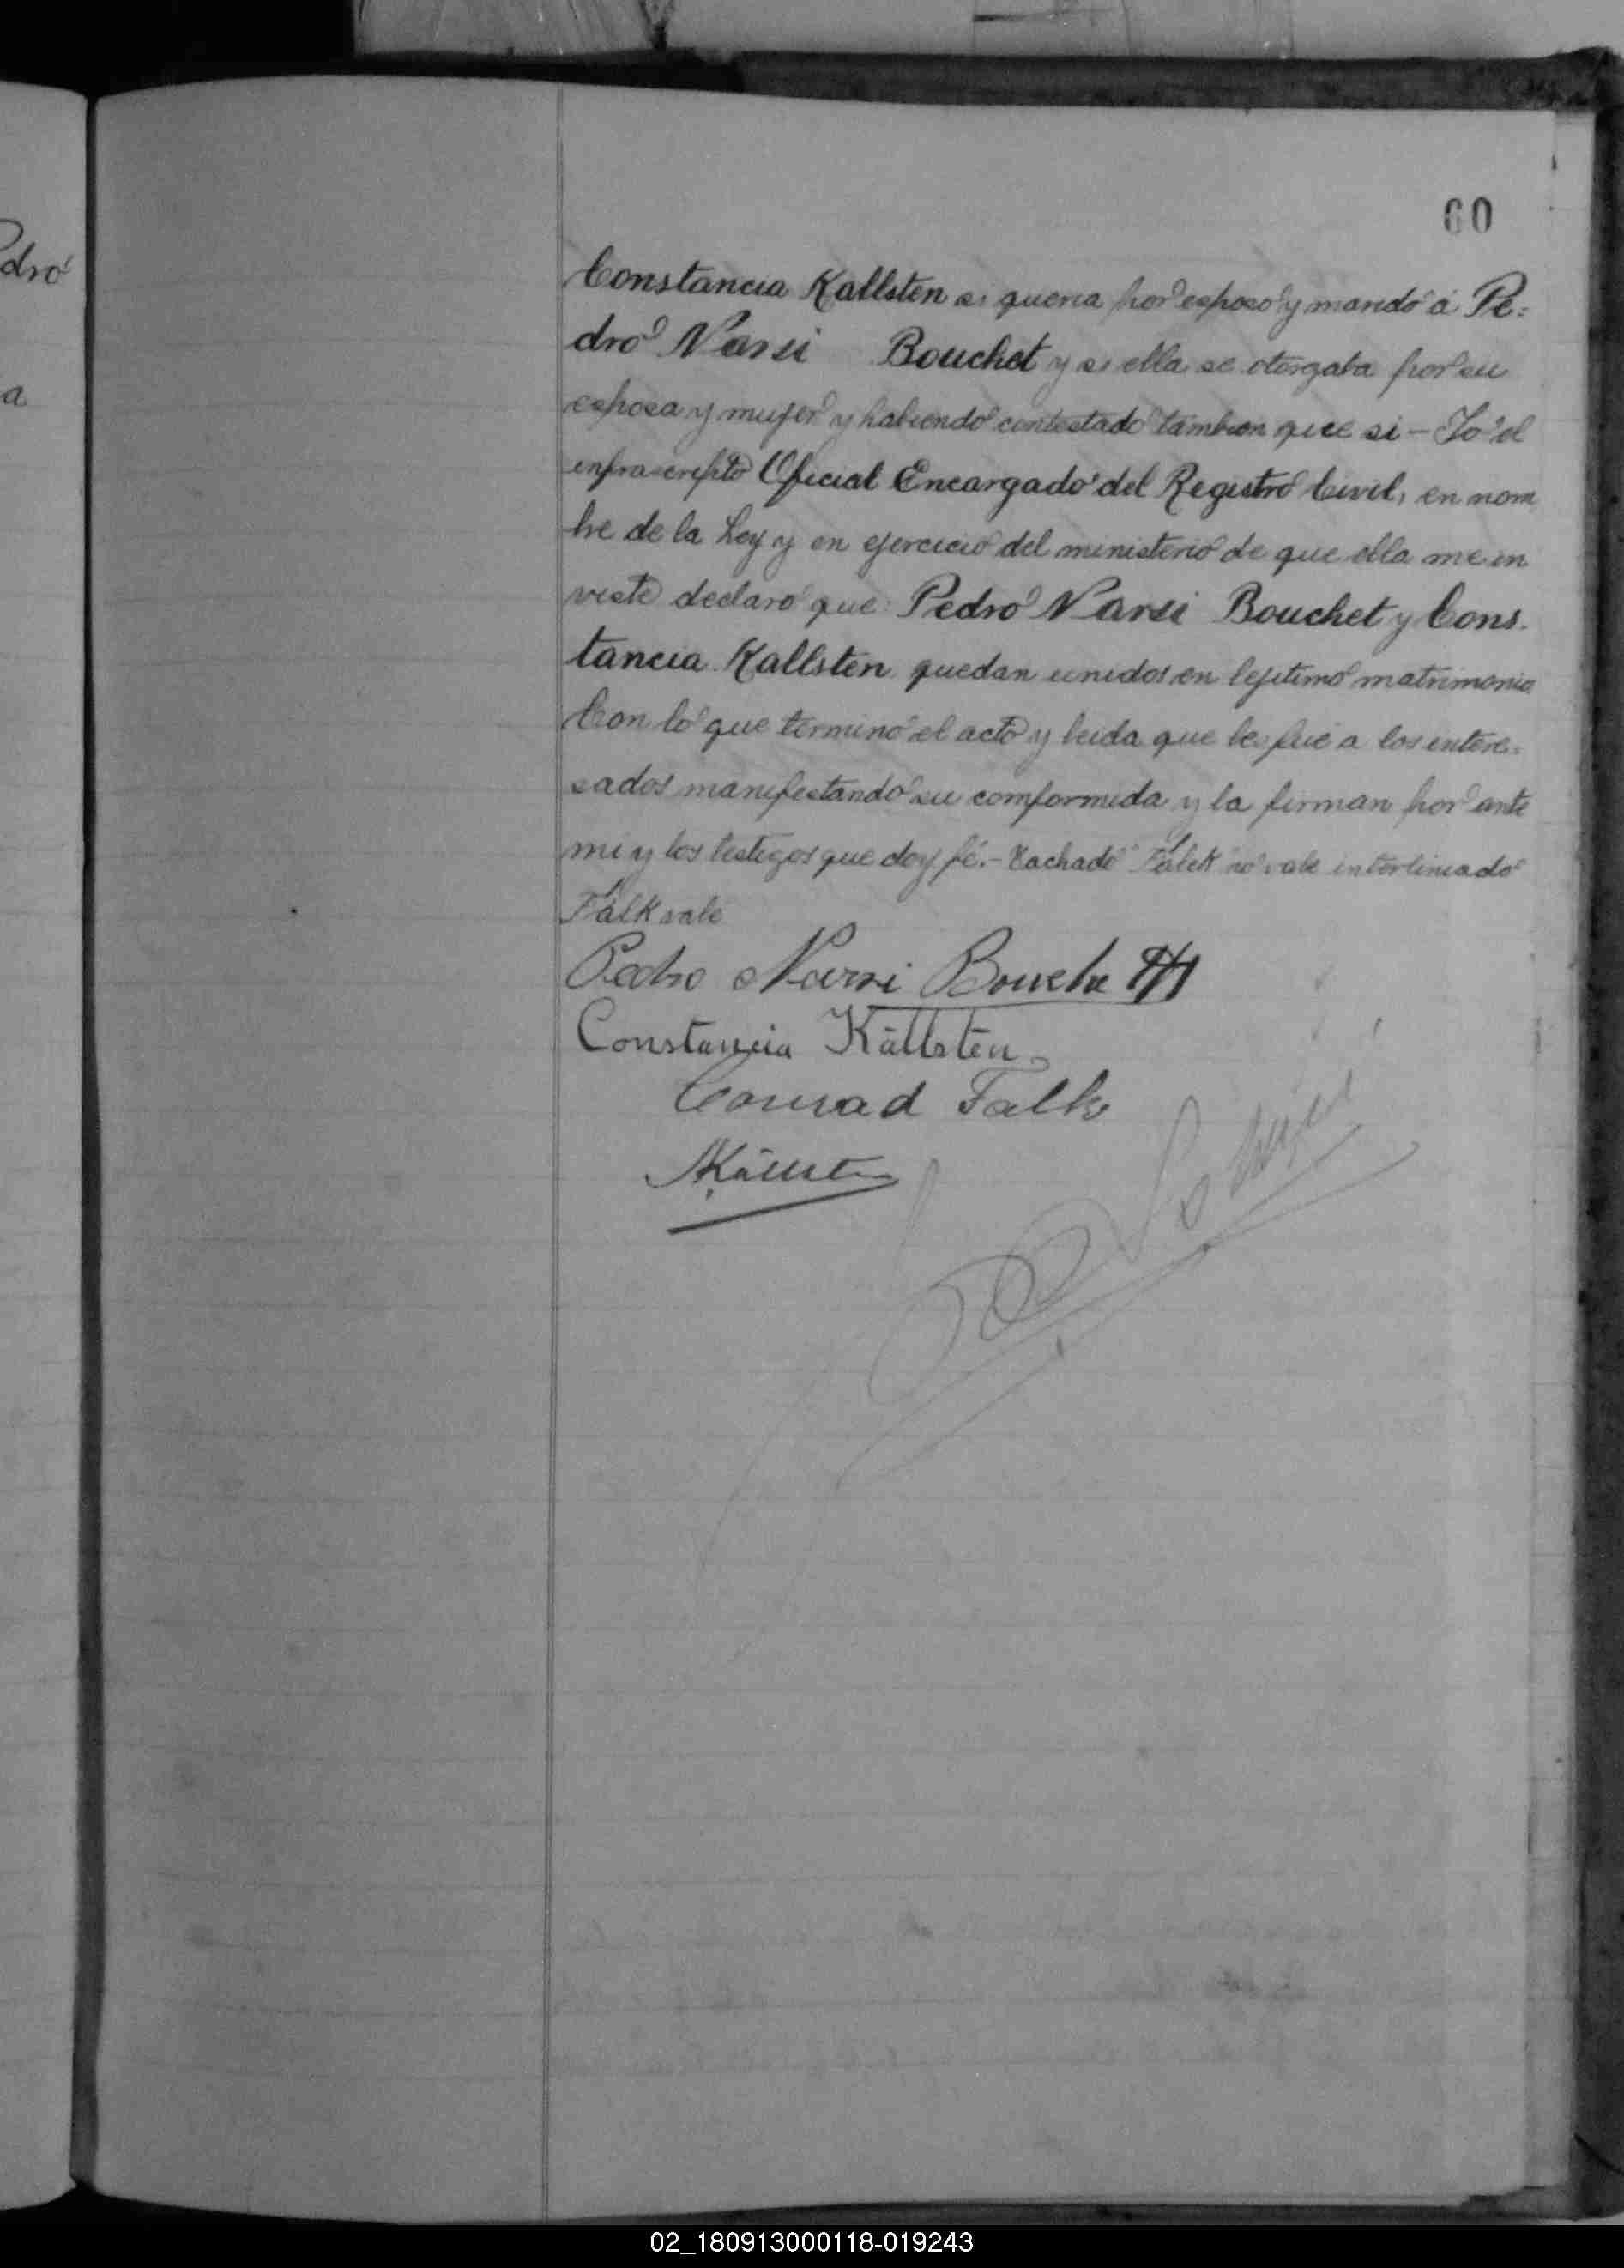 dro
a
60
Constancia Kallsten si queria por esposo y marido á Pe=
dro Narsi Bouchet y si ella se otorgaba por su
esposa y mujer y habiendo contestado tambien que si - Yo el
infrascripto Oficial Encargado del Registro Civil, en nom
bre de la Ley y en ejercicio del ministerio de que ella me in
viste declaro que Pedro Narsi Bouchet y Cons.
tancia Kallsten quedan unidos en lejitimo matrimonio
Con lo que terminó el acto y leida que les fué a los intere=
sados manifestando su comformida y la firman por ante
mi y los testigos que doy fé.- Tachado "Falck" no vale interliniado
Falk vale
Pedro Narsi Bouche
Constancia Källstén
Conrad Falk
Källsten
02_180913000118-019243